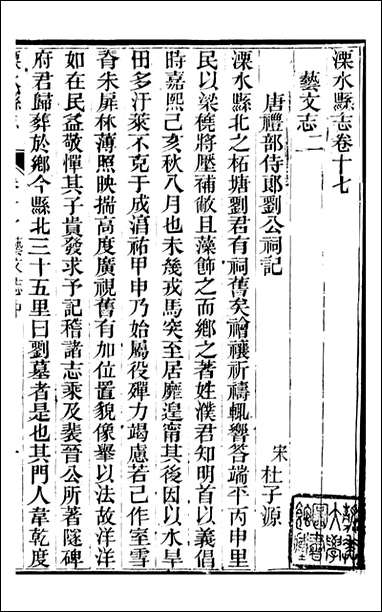 溧水縣志卷十七
藝文志二
唐禮部侍郎劉公祠記
宋 杜子源
溧水縣北之柘塘劉君有祠舊矣禬禳祈禱輒響答端平丙申里
民以梁橈將壓補敝且藻飾之而鄉之著姓濮君知明首以義倡
時嘉熙己亥秋八月也未幾戎馬突至居靡遑甯其後因以水旱
田多汙萊不克于成淯祐甲申乃始屬役殫力竭慮若己作室雪
脊朱屏林薄照映揣高度廣視舊有加位置貌像畢以法故洋洋
如在民益敬憚其子貴發求予記稽諸志乘及裴晉公所著隧碑
府君歸葬於鄉今縣北三十五里曰劉墓者是也其門人韋乾度